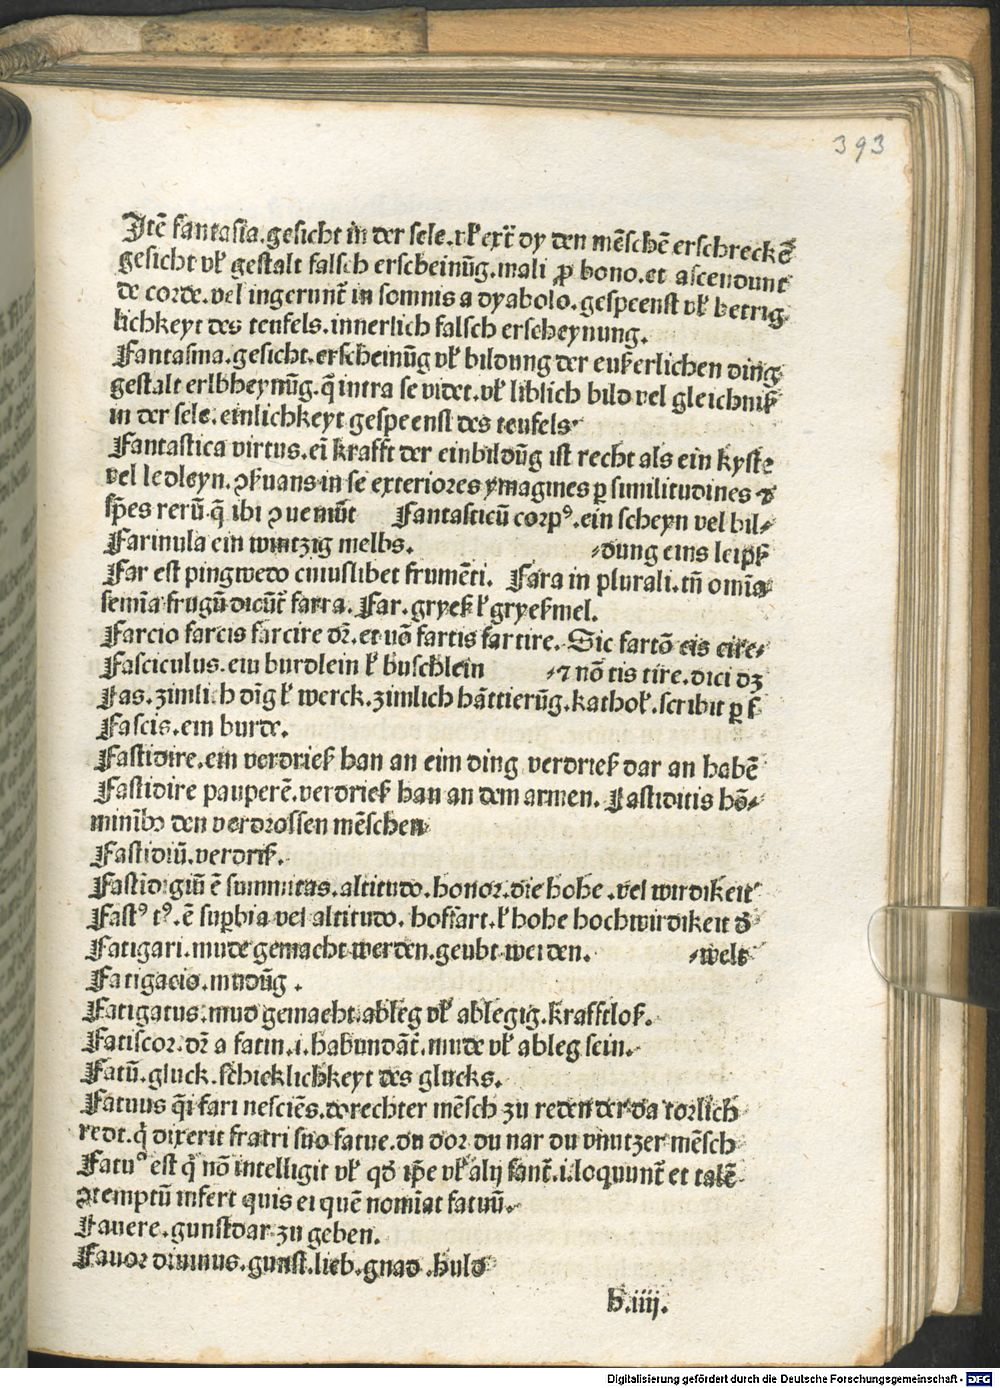 393
Jtẽ fantasia.gesicht in der sele.vł extr̃ dy den mẽschẽ erschreckẽ
gesicht vł gestalt falsch erscheinũg.mali ꝓ bono.et ascendunt
de corde.vel ingerunt̃ in somnis a dyabolo.gespeenst vł betrig
lichkeyt des teufels.innerlich falsch erscheynung.
Fantasma.gesicht.erscheinũg vł bildung der eußerlichen ding
gestalt erlbheynũg.q̃ intra se videt.vł liblich bild vel gleichniß
in der sele.einlichkeyt gespeenst des teufels
Fantastica virtus.eĩ krafft der einbildũg ist recht als ein kyste
vel ledleyn.ꝯẜuans in se exteriores ymagines ꝑ similitudines ⁊
sp̃es rerũ q̃ ibi ꝯueniũt Fantasticũ corpꝰ.ein scheyn vel bil⸗
Farinula ein wintzig melbs. ⸗dung eins leipß
Far est pingwedo cuiuslibet frumẽti. Fara in plurali.tñ omĩa
semĩa frugũ dicũt̃ farra. Far.gryeß ł gryeßmel.
Farcio farcis farcire dr̃.et nõ fartis fartire. Sic fartõ eis eire⸗
Fasciculus.ein burdlein ł buschlein ⸗⁊ nõ tis tire.dici dꝫ
Fas.zimlich dĩg ł werck.zimlich hãttierũg.kathoł.scribit ꝑ s
Fascis.ein burde.
Fastidire.ein verdrieß han an eim ding verdrieß dar an habẽ
Fastidire pauperẽ.verdrieß han an dem armen. Fastiditis hõ⸗
minibꝫ den verdrossen mẽschen
Fastidiũ.verdriß.
Fastĩdigiũ ẽ summitas.altitudo.honor.die hohe.vel wirdikeit
Fastꝰ tꝰ.ẽ suꝑbia vel altitudo. hoffart.ł hohe hochwirdikeit ď
Fatigari.mude gemacht werden.geubt werden. ⸗welt
Fatigacio.mudũg.
Fatigatus.mud gemacht.ableg vł ablegig.krafftloß.
Fatiscor.dr̃ a fatin.i.habundãt̃.mude vł ableg sein.
Fatũ.gluck.schicklichkeyt des glucks.
Fatuus q̃i fari nesciẽs.dorechter mẽsch zu reden der da torlich
redt.q̃ dixerit fratri suo fatue.du dor du nar du vnutzer mẽsch
Fatuꝰ est q̃ nõ intelligit vł qď ip̃e vł alij fant̃.i.loquunt̃ et talẽ
ꝯtemptũ infert quis ei quẽ nomĩat fatuũ.
Fauere.gunstbar zu geben.
Fauor diuinus.gunst.lieb.gnad.huld
h.iiij.
Digitalisierung gefördert durch die Deutsche Forschungsgemeinschaft - DFG